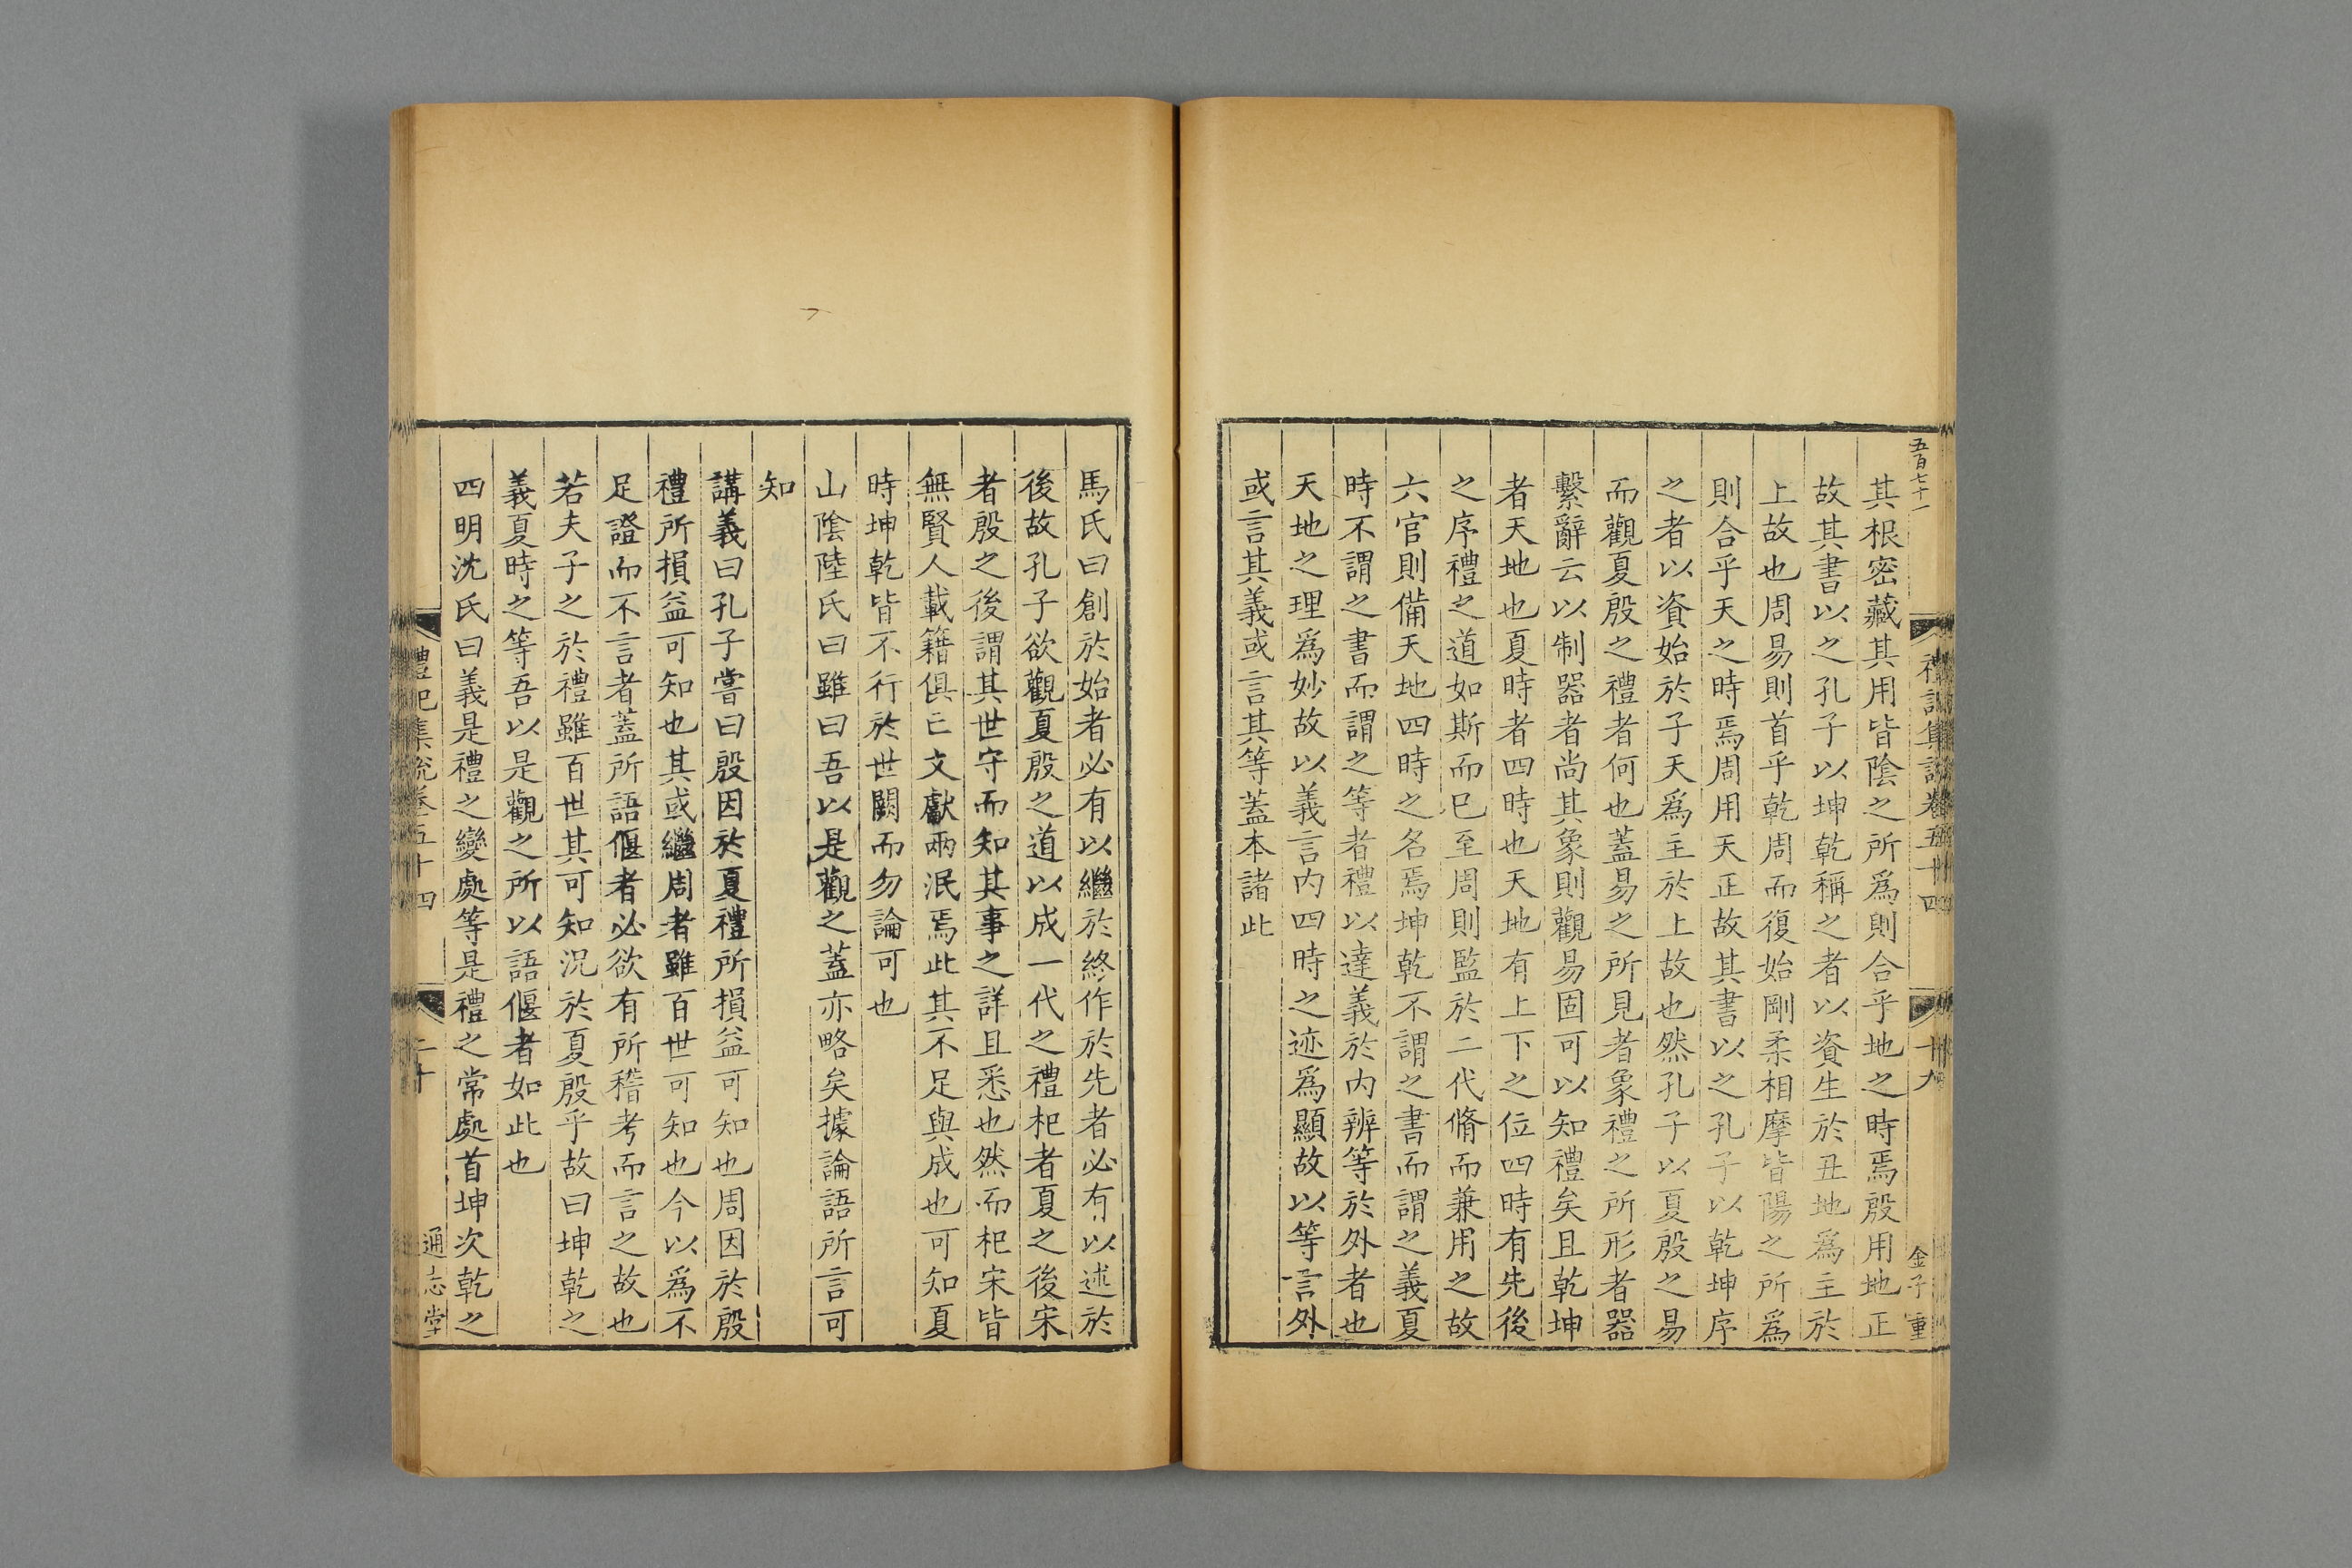 五百七十一
禮記集說卷五十四
十九
金子重
其根密藏其用皆陰之所爲則合乎地之時焉殷用地正
故其書以之孔子以坤乾稱之者以資生於丑地爲主於
上故也周易則首乎乾周而復始剛柔相摩皆陽之所爲
則合乎天之時焉周用天正故其書以之孔子以乾坤序
之者以資始於子天爲主於上故也然孔子以夏殷之易
而觀夏殷之禮者何也蓋易之所見者象禮之所形者器
繫辭云以制器者尚其象則觀易固可以知禮矣且乾坤
者天地也夏時者四時也天地有上下之位四時有先後
之序禮之道如斯而已至周則監於二代脩而兼用之故
六官則備天地四時之名焉坤乾不謂之書而謂之義夏
時不謂之書而謂之等者禮以達義於内辨等於外者也
天地之理爲妙故以義言内四時之迹爲顯故以等言外
或言其義或言其等蓋本諸此
馬氏曰創於始者必有以繼於終作於先者必有以述於
後故孔子欲觀夏殷之道以成一代之禮杞者夏之後宋
者殷之後謂其世守而知其事之詳且悉也然而杞宋皆
無賢人載籍俱亡文獻兩泯焉此其不足與成也可知夏
時坤乾皆不行於世闕而勿論可也
山陰陸氏曰雖曰吾以是觀之蓋亦略矣據論語所言可
知
講義曰孔子嘗曰殷因於夏禮所損益可知也周因於殷
禮所損益可知也其或繼周者雖百世可知也今以爲不
足證而不言者蓋所語偃者必欲有所稽考而言之故也
若夫子之於禮雖百世其可知況於夏殷乎故曰坤乾之
義夏時之等吾以是觀之所以語偃者如此也
四明沈氏曰義是禮之變處等是禮之常處首坤次乾之
禮記集說卷五十四
二十
通志堂